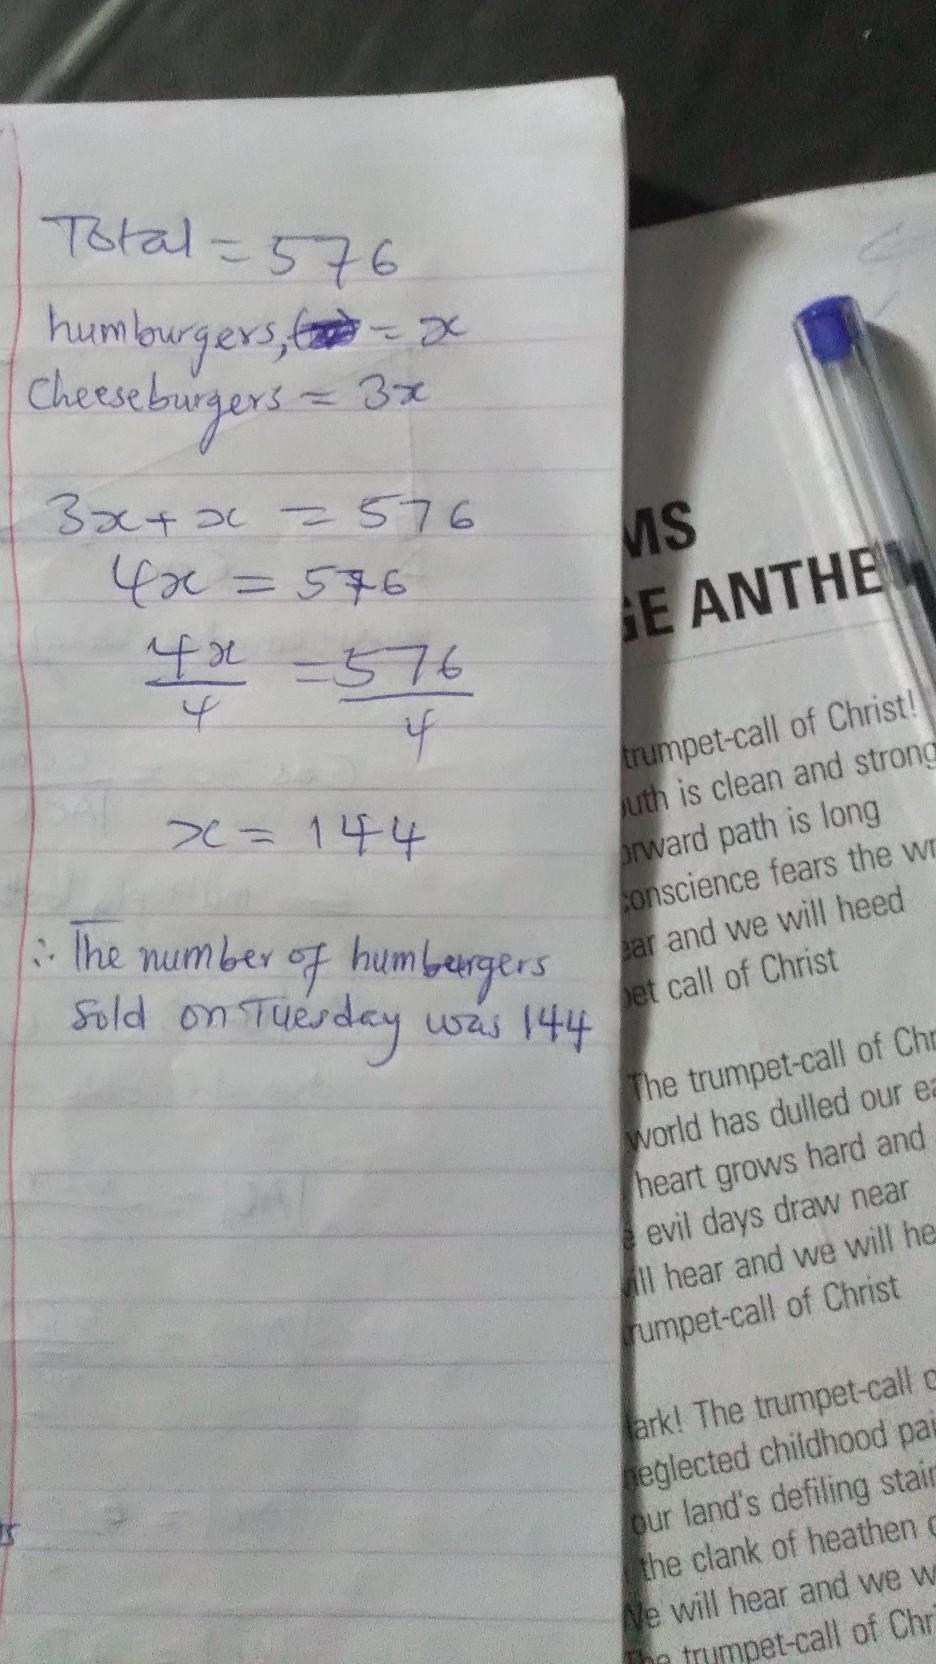 Total = 576
humburgers, = x
Cheeseburgers = 3x
3x + x = 576
4x = 576
4x/4 = 576/4
x = 144
∴ The number of humburgers
Sold on Tuesday was 144
MS
GE ANTHE
trumpet-call of Christ!
uth is clean and strong
orward path is long
conscience fears the wr
ear and we will heed
pet call of Christ
The trumpet-call of Chr
world has dulled our ea
heart grows hard and
evil days draw near
ill hear and we will he
rumpet-call of Christ
ark! The trumpet-call o
neglected childhood pai
our land's defiling stair
the clank of heathen c
We will hear and we w
The trumpet-call of Chri